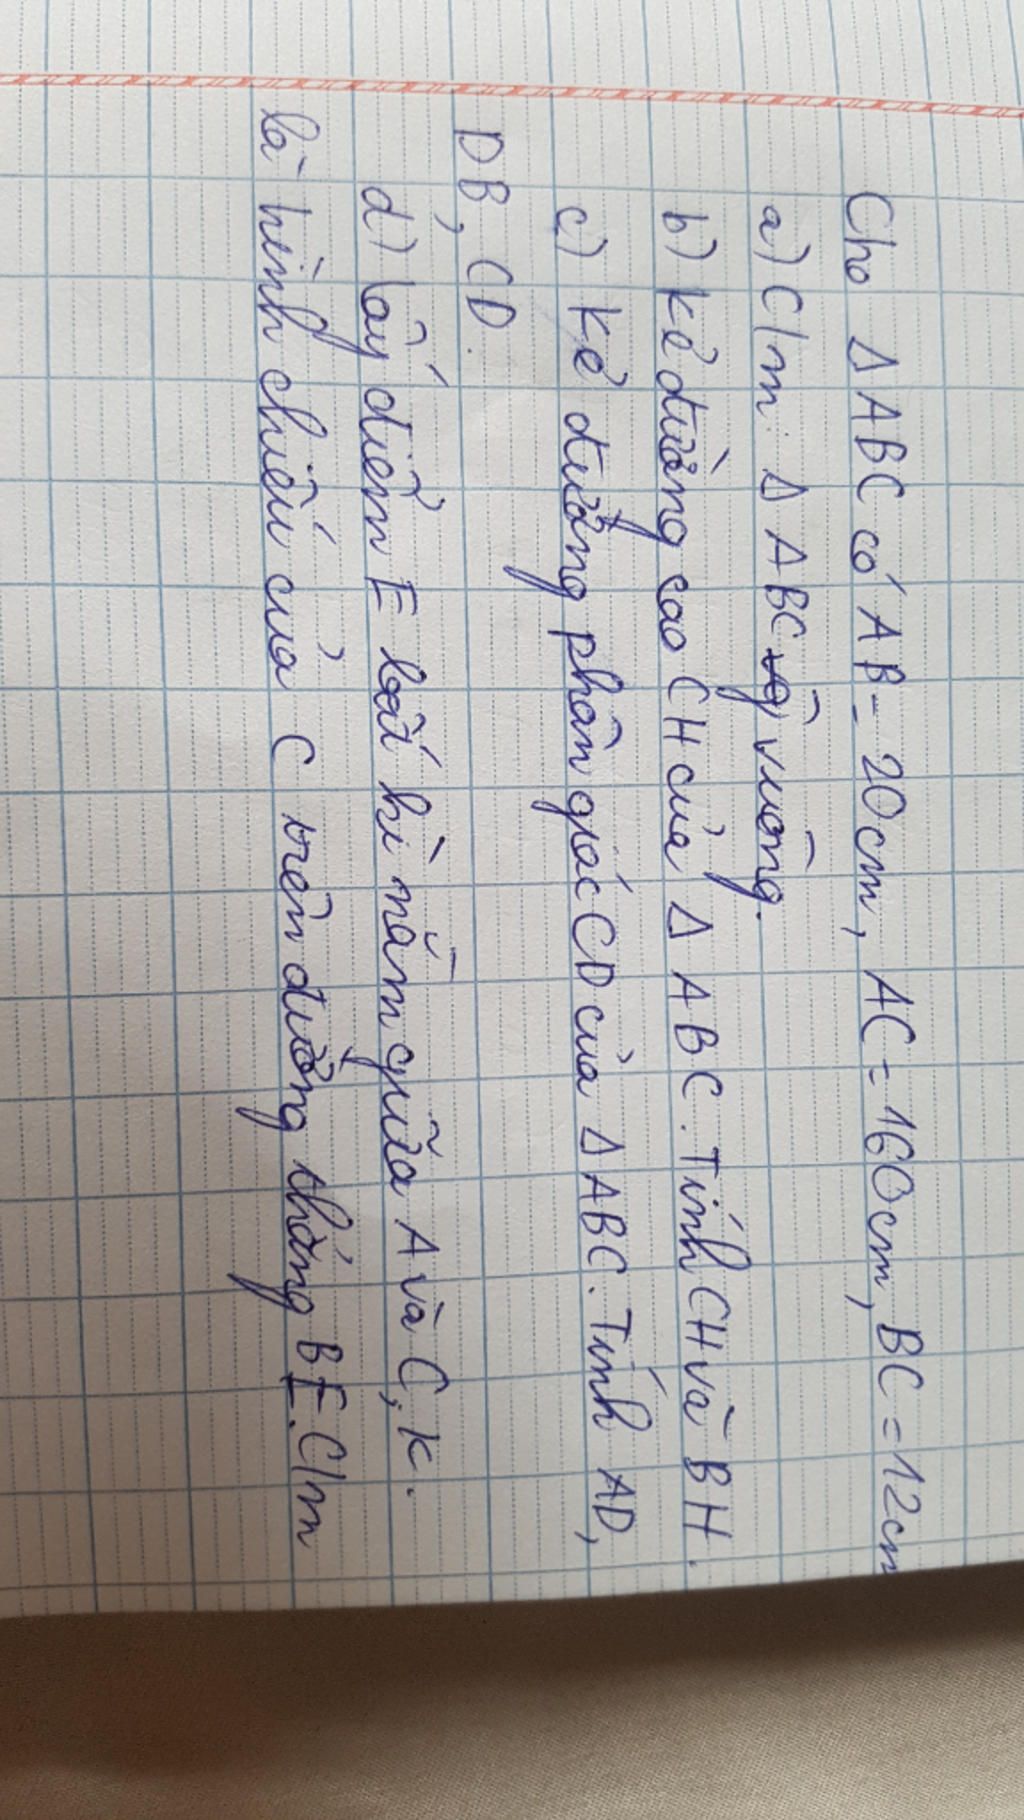 Cho Δ ABC có AB = 20cm, AC = 160cm, BC = 12cm
a) C/m: Δ ABC vuông.
b) Kẻ đường cao CH của Δ ABC. Tính CH và BH.
c) Kẻ đường phân giác CD của Δ ABC. Tính AD,
DB, CD.
d) Lấy điểm E bất kì nằm giữa A và C, K.
là hình chiếu của C trên đường thẳng BE. C/m